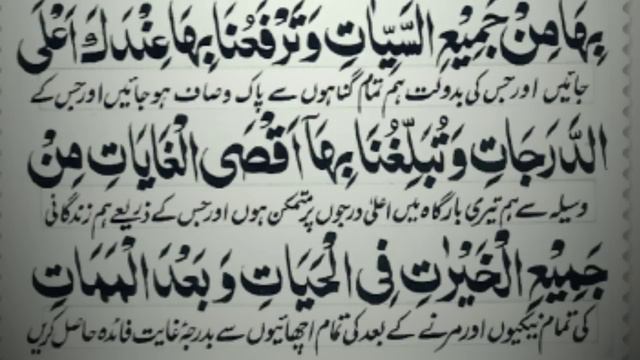 بِهَا مِنْ جَمِيْعِ السَّيِّاٰتِ وَتَرْفَعُنَا بِهَا عِنْدَكَ اَعْلَى
جائیں اور جس کی بدولت ہم تمام گناہوں سے پاک وصاف ہو جائیں اور جس کے
الدَّرَجَاتِ وَتُبَلِّغُنَا بِهَآ اَقْصَى الْغَايَاتِ مِنْ
وسیلہ سے ہم تیری بارگاہ میں اعلیٰ درجوں پر متمکن ہوں اور جس کے ذریعے ہم زندگانی
جَمِيْعِ الْخَيْرٰتِ فِى الْحَيَاتِ وَ بَعْدَ الْمَمَاتِ
کی تمام نیکیوں اور مرنے کے بعد کی تمام اچھائیوں سے بدرجۂ غایت فائدہ حاصل کریں